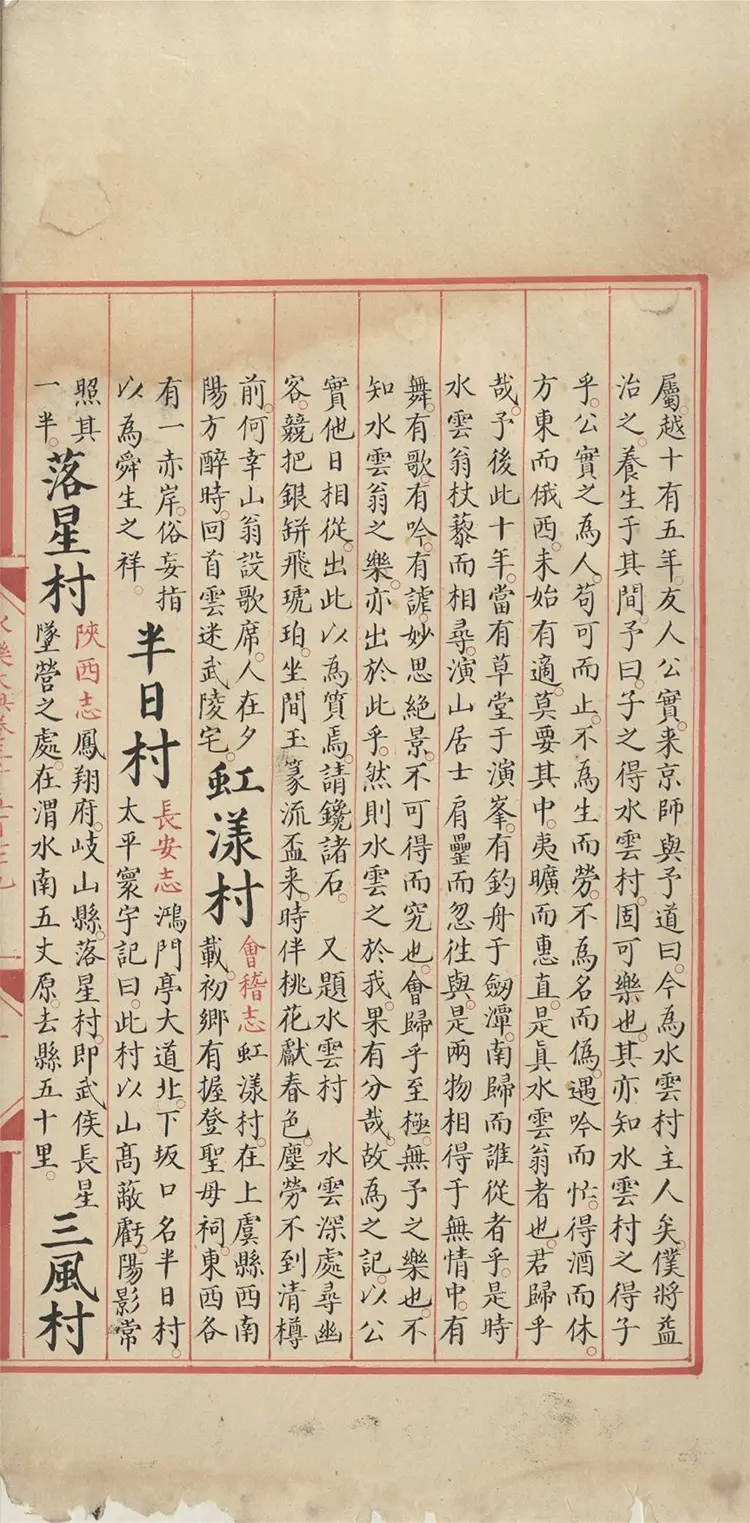 屬。越十有五年。友人公實。来京師與予道曰。今為水雲村主人矣。僕將益
治之。養生于其間。予曰。子之得水雲村。固可樂也。其亦知水雲村之得子
乎。公實之為人。苟可而止。不為生而勞。不為名而偽。遇吟而忙。得酒而休。
方東而俄西。未始有適。莫要其中。夷曠而惠直。是真水雲翁者也。君歸乎
哉。予後此十年。當有草堂于演峯。有釣舟于劒潭。南歸而誰從者乎。是時
水雲翁杖藜而相尋。演山居士肩罍而忽往與。是兩物相得于無情中。有
舞。有歌。有吟。有謔。妙思絕景。不可得而究也。會歸乎至極。無予之樂也。不
知水雲翁之樂。亦出於此乎。然則水雲之於我。果有分哉。故為之記。以公
實他日相從。出此以為質焉。請鑱諸石。 又題水雲村 水雲深處尋幽
客。競把銀缾飛琥珀。坐間玉篆流盃来。時伴桃花獻春色。塵勞不到清樽
前。何幸山翁設歌席。人在夕
陽方醉時。回首雲迷武陵宅。
虹漾村
會稽志虹漾村。在上虞縣西南
載。初鄉有握登聖母祠。東西各
有一赤岸。俗妄指
以為舜生之祥。
半日村
長安志鴻門亭大道北。下坂口名半日村。
太平寰宇記曰。此村以山髙蔽虧。陽影常
照其
一半。
落星村
陝西志鳳翔府。岐山縣。落星村。即武侯長星
墜營之處。在渭水南五丈原。去縣五十里。
三風村